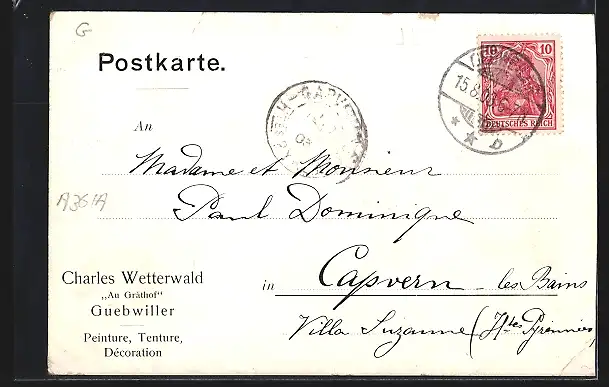 G
Postkarte.
10 10
DEUTSCHES REICH
15.8.0
D
An
Madame et Monsieur
Paul Dominique
A361A
Charles Wetterwald
„Au Gräthof"
Guebwiller
Peinture, Tenture,
Décoration
in Capvern - les Bains
Villa Suzanne (Htes Pyrénées)